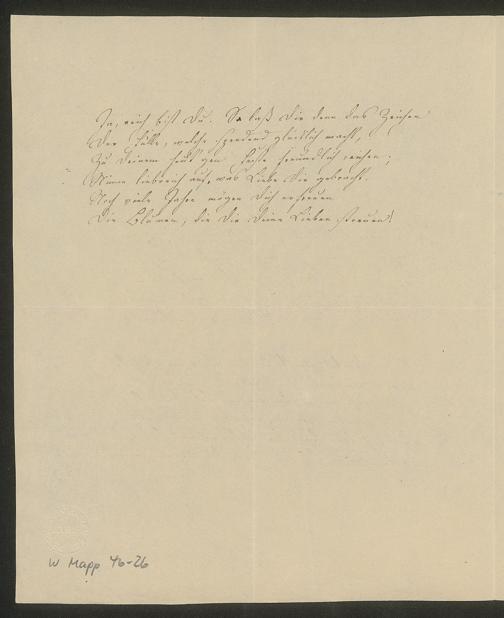 Ja, reich bist Du. So laß Dir denn das Zeichen
Der Fülle, welche spendend glücklich macht,
Zu Deinem heut'gen Feste freundlich reichen;
Nimm liebreich auf, was Liebe Dir gebracht.
Noch viele Jahre mögen Dich erfreuen
Die Blumen, die Dir Deine Lieben streuen!
W Mapp 46-26